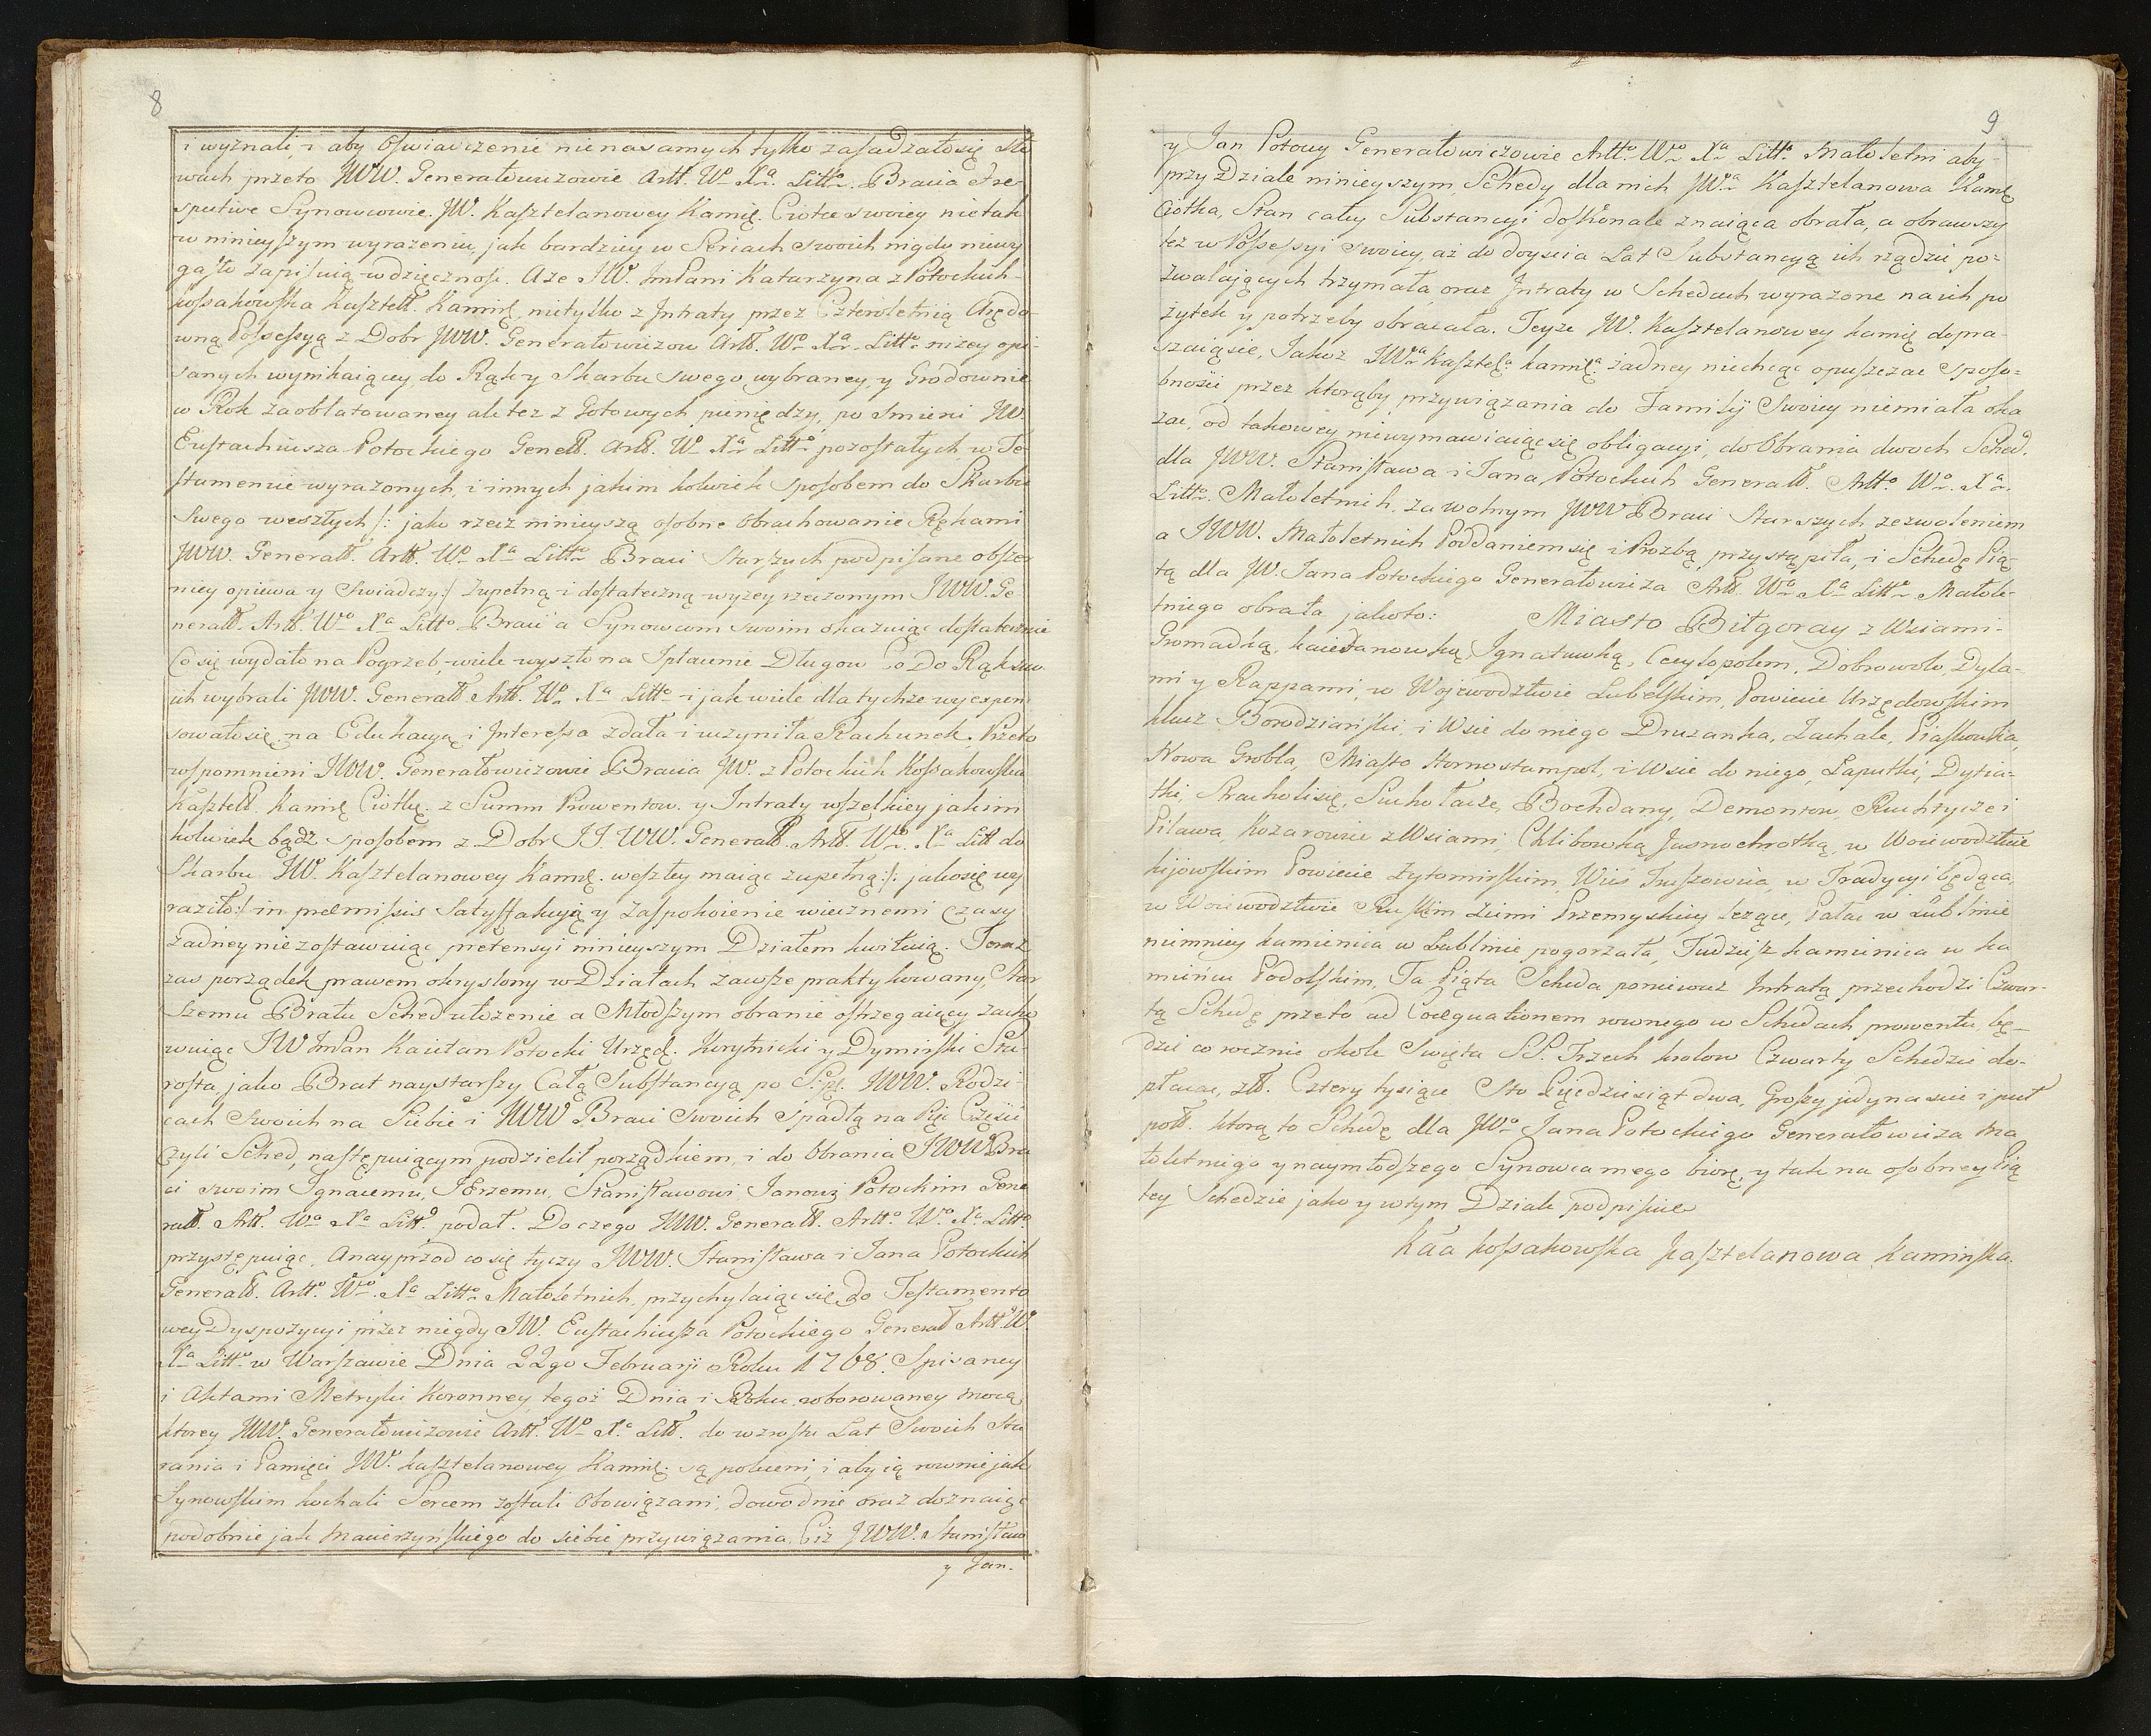 8
i wyznali, i aby Oświadczenie nie na samych tylko zasadzało się Sło
wach przeto JWW. Generałowiczowie Artt. Wo Xa Litto. Bracia et re-
spective Synowcowie JW. Kasztelanowey Kamię. Ciotce swoiey nie tak
w ninieyszym wyrażeniu, jak bardziey w Sercach swoich nigdy niewy
gasło zapisuią wdzięczność. A że JW. JmPani Katarzyna z Potockich
Kossakowska Kasztell. Kamię, nietylko z Jntraty przez Czteroletnią Arędo-
wną Possessyą z Dobr JWW. Generałowiczow Artt. Wo Xa Litto niżey opi-
sanych wynikaiącey, do Rąk y Skarbu swego wybraney, y Grodownie
w Rok zaoblatowaney ale też z Gotowych pieniędzy, po Śmierci JW
Eustachiusza Potockiego Generall. Artt. Wo Xa Litto pozostałych, w Te-
stamencie wyrażonych, i innych jakim kolwiek sposobem do Skarbu
Swego weszłych /: jako rzecz ninieyszą osobne Obrachowanie Rękami
JWW. Generall. Artt. Wo Xa Litto Braci Starszych podpisane obszer
niey opiewa y świadczy :/ Zupełną i dostateczną wyżey rzeczonym JWW. Ge-
nerall. Artt. Wo Xa Litto Braci a Synowcom swoim okazuiąc dostatecznie
Co się wydało na Pogrzeb, wiele wyszło na Spłacenie Długow Co Do Rąk swo
ich wybrali JWW. Generall Artt. Wo Xa Litto i jak wiele dla tychże wyexpen
sowało się na Edukacyą i Jnteressa zdała i uczyniła Rachunek. Przeto
wspomnieni JWW. Generałowiczowie Bracia JW. z Potockich Kossakowską
Kasztell. Kamię Ciotkę. z Summ Prowentow. y Jntraty wszelkiey jakim
kolwiek bądź sposobem z Dobr JJ. WW. Generall. Artt. Wo. Xa Litt do
Skarbu JW. Kasztelanowey Kamię. weszłey maiąc zupełną :/: jako się wy
raziło :/ in praemissis Satysfakcyią y Zaspokoienie wiecznemi czasy
żadney nie zostawuiąc pretensyi ninieyszym Działem kwituią. Teraz
zas porządek prawem okryslony w Działach zawsze praktykowany, Star
szemu Bratu Sched ułożenie a Młodszym obranie ostrzegaiący zacho
wuiąc JW JmPan Kaietan Potocki Urzęd. Korytnicki y Dymirski Sta-
rosta jako Brat naystarszy Całą Substancyą po JWW. Rodzi-
cach swoich na Siebie i JWW Braci Swoich spadłą na Pięc Częsci
czyli Sched, następuiącym podzielił porządkiem, i do Obrania JWW Bra
ci swoim Jgnacemu, Jerzemu, Stanisławowi, Janowi Potockim Gene
rall. Artt. Wo Xa Litto podał. Do czego JWW. Generall. Artto. Wo. Xa Litto.
przystępuiąc, A nayprzod co się tyczy JWW. Stanisława i Jana Potockich
Generall. Artto. Wo. Xa Litto Małoletnich, przychylaiąc się do Testamento
wey Dyspozycyi przez niegdy JW. Eustachiusza Potockiego Generał Artt. Wo
Xa Litto w Warszawie Dnia 22go Februarji Roku 1768. Spisaney
i Aktami Metryki Koronney tegoż Dnia i Roku roborowaney mocą
ktorey JWW. Generałowiczowie Artt. Wo Xa Litt. do wzrostu Lat Swoich Sta
rania i Pamięci JW. Kasztelanowey Kamię. są poleceni, i aby ią rownie jak
Synowskim kochali Sercem zostali Obowiązani, dowodnie oraz doznaiąc
podobnie jak Macierzyńskiego do siebie przywiązania. Ciż JWW. Stanisław
y Jan.
9
y Jan Potoccy Generałowiczowie Artto. Wo Xa Litto Małoletni aby
przy Dziale ninieyszym, Schedy dla nich JWa Kasztelanowa Kamię
Ciotka, Stan cały Substancyi doskonale znaiąca obrała, a obrawszy
też w Possessyi swoiey, aż do doyscia Lat Substancyą ich rządzic po-
zwalaiących trzymała, oraz Jntraty w Schedach wyrażone na ich po
żytek y potrzeby obracała. Teyże JW. Kasztelanowey Kamię dopra-
szaią się, Jakoż JWa Kasztela Kamię. żadney niechcąc opuszczac sposo-
bności przez ktorąby przywiązania do Familji Swoiey niemiała oka
zac, od takowey niewymawiaiąc się obligacyi, do Obrania dwoch Sched.
dla JWW. Stanisława i Jana Potockich Generall. Artto. Wo. Xa
Litto. Małoletnich. za wolnym JWW Braci Starszych zezwoleniem
a JWW. Małoletnich Poddaniem się i Prozbą przystąpiła, i Schedę Pią
tą dla JW. Jana Potockiego Generałowicza Artt. Wo Xa Litto Małole-
tniego obrała jakoto: Miasto Biłgoray z Wsiami
Gromadką, Kaietanowką, Jgnatowką, Cecylopolem, Dobrowolo, Dyla-
mi y Rappami, w Wojewodztwie Lubelskim, Powiecie Urzędowskim
klucz Borodziański, i Wsie do niego Druzanka, Zachale, Piaskowka,
Nowa Grobla, Miasto Hornostaypol, i Wsie do niego, Łaputki, Dytia-
tki, Stracholisię, Sucholacze, Bochdany, Demontow, Ruchtycze i
Pilawa, Kozarowicze z Wsiami, Chlibowką Jasnochrotką, w Woiewodztwie
kijowskim Powiecie Zytomirskim, Wieś Truszowice, w Tradycyi będąca,
w Woiewodztwie Ruskim Ziemi Przemyskiey leżące, Pałac w Lublinie
niemniey kamienica w Lublinie pogorzała, Tudzież kamienica w Ka
mieńcu Podolskim, Ta Piąta Scheda poniewaz Jntratą przechodzi Czwar-
tą Schedę przeto ad Coaequationem rownego w Schedach prowentu, bę-
dzie co rocznie okolo Swięta SS. Trzech krolow Czwartey Schedzie do-
płacac, złł. Cztery tysiące Sto Pięcdziesiąt dwa, Groszy jedynascie i puł
poll. którą to Schedę dla JWo Jana Potockiego Generałowicza Ma
łoletniego y naymłodszego Synowca mego biorę, y tak na osobney Pią
tey Schedzie jako y w tym Dziale podpisuię
Kāa Kossakowska Kasztelanowa Kaminska.